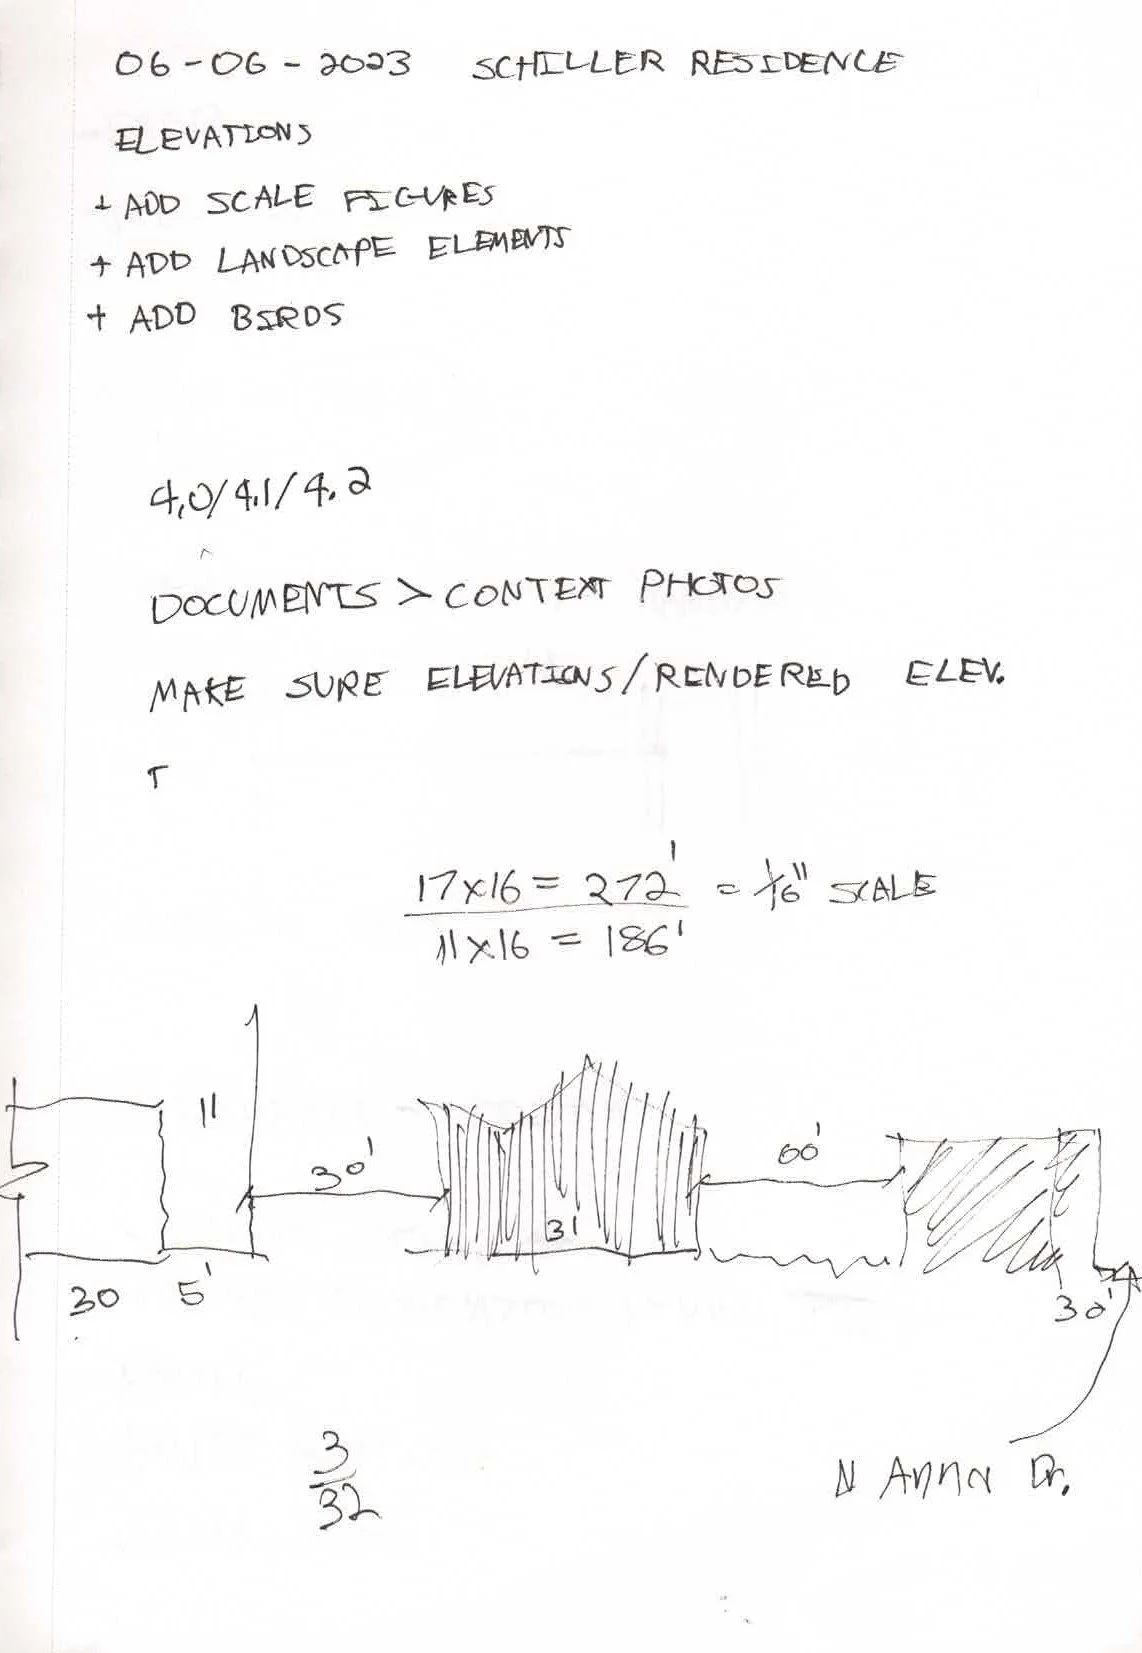 06-06-2023 SCHILLER RESIDENCE
ELEVATIONS
+ ADD SCALE FIGURES
+ ADD LANDSCAPE ELEMENTS
+ ADD BIRDS
4.0/4.1/4.2
DOCUMENTS > CONTEXT PHOTOS
MAKE SURE ELEVATIONS/RENDERED ELEV.
T
17x16 = 272' = 1/16" SCALE
11x16 = 186'
11
30'
60'
31
30 5'
30'
3/32
N Anna Dr.